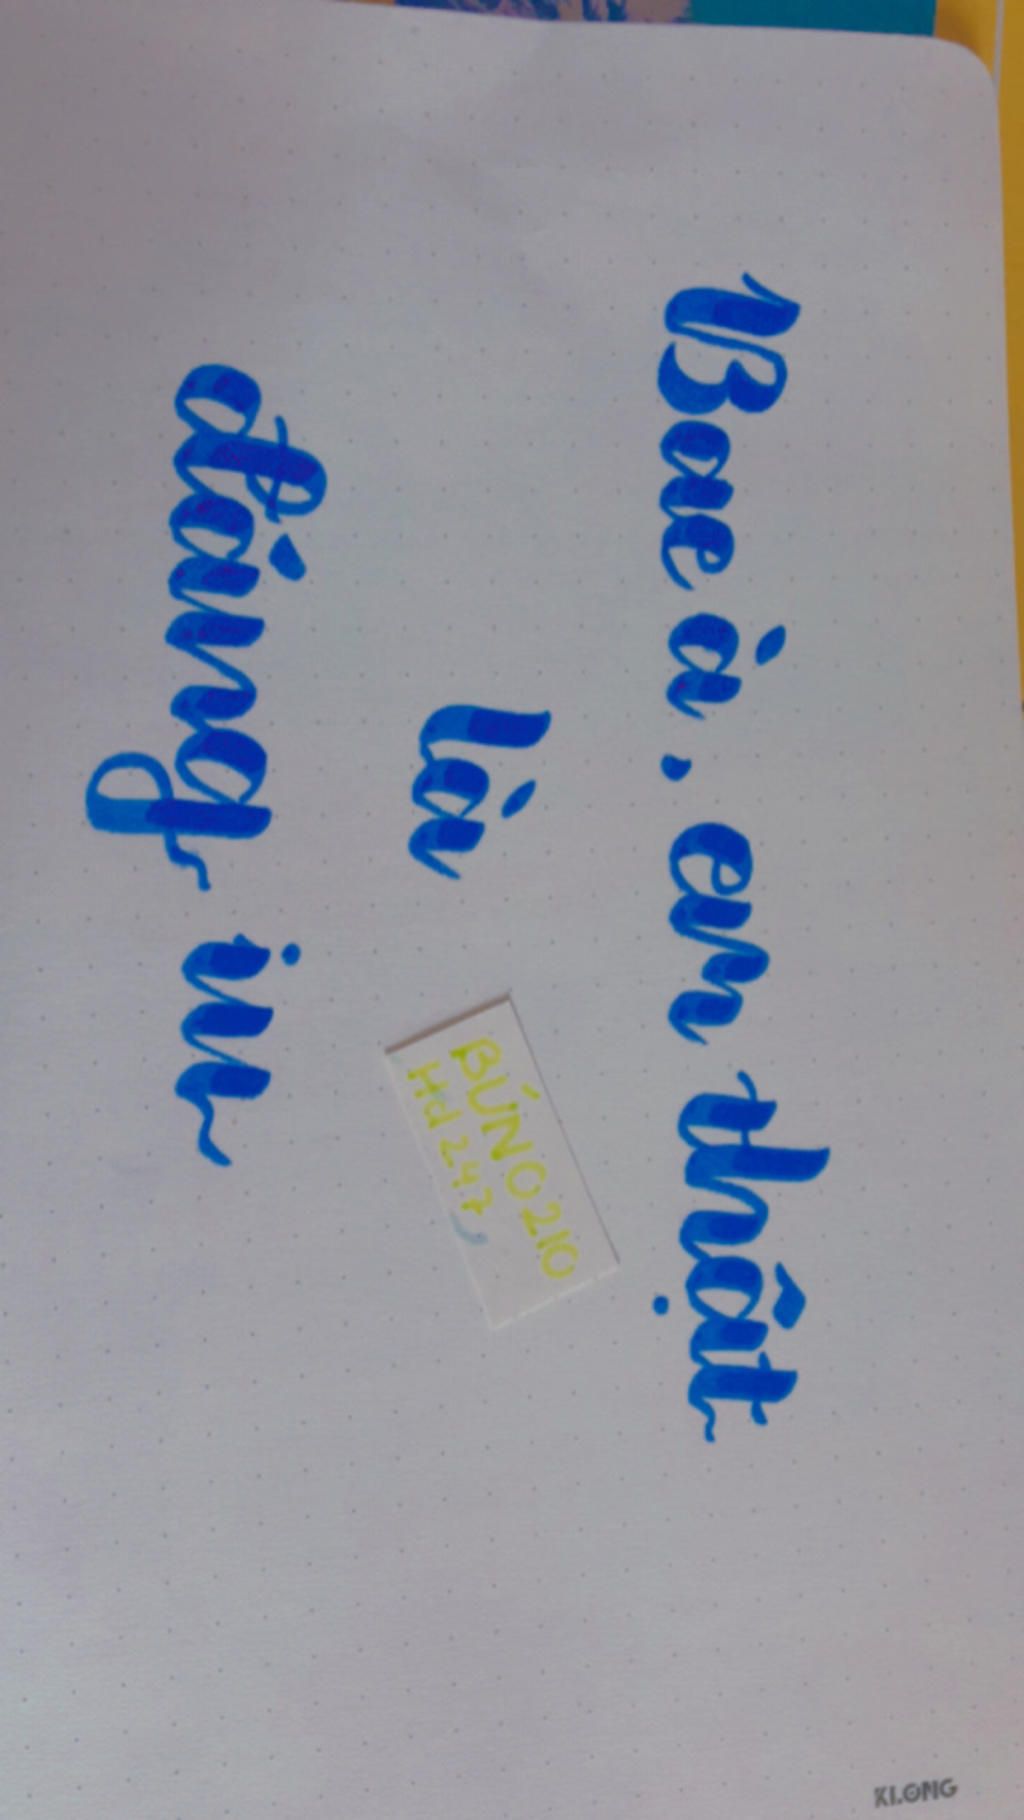 Bae à . em thật
là
đáng iu
BÚNO210
Hd 247
KLONG